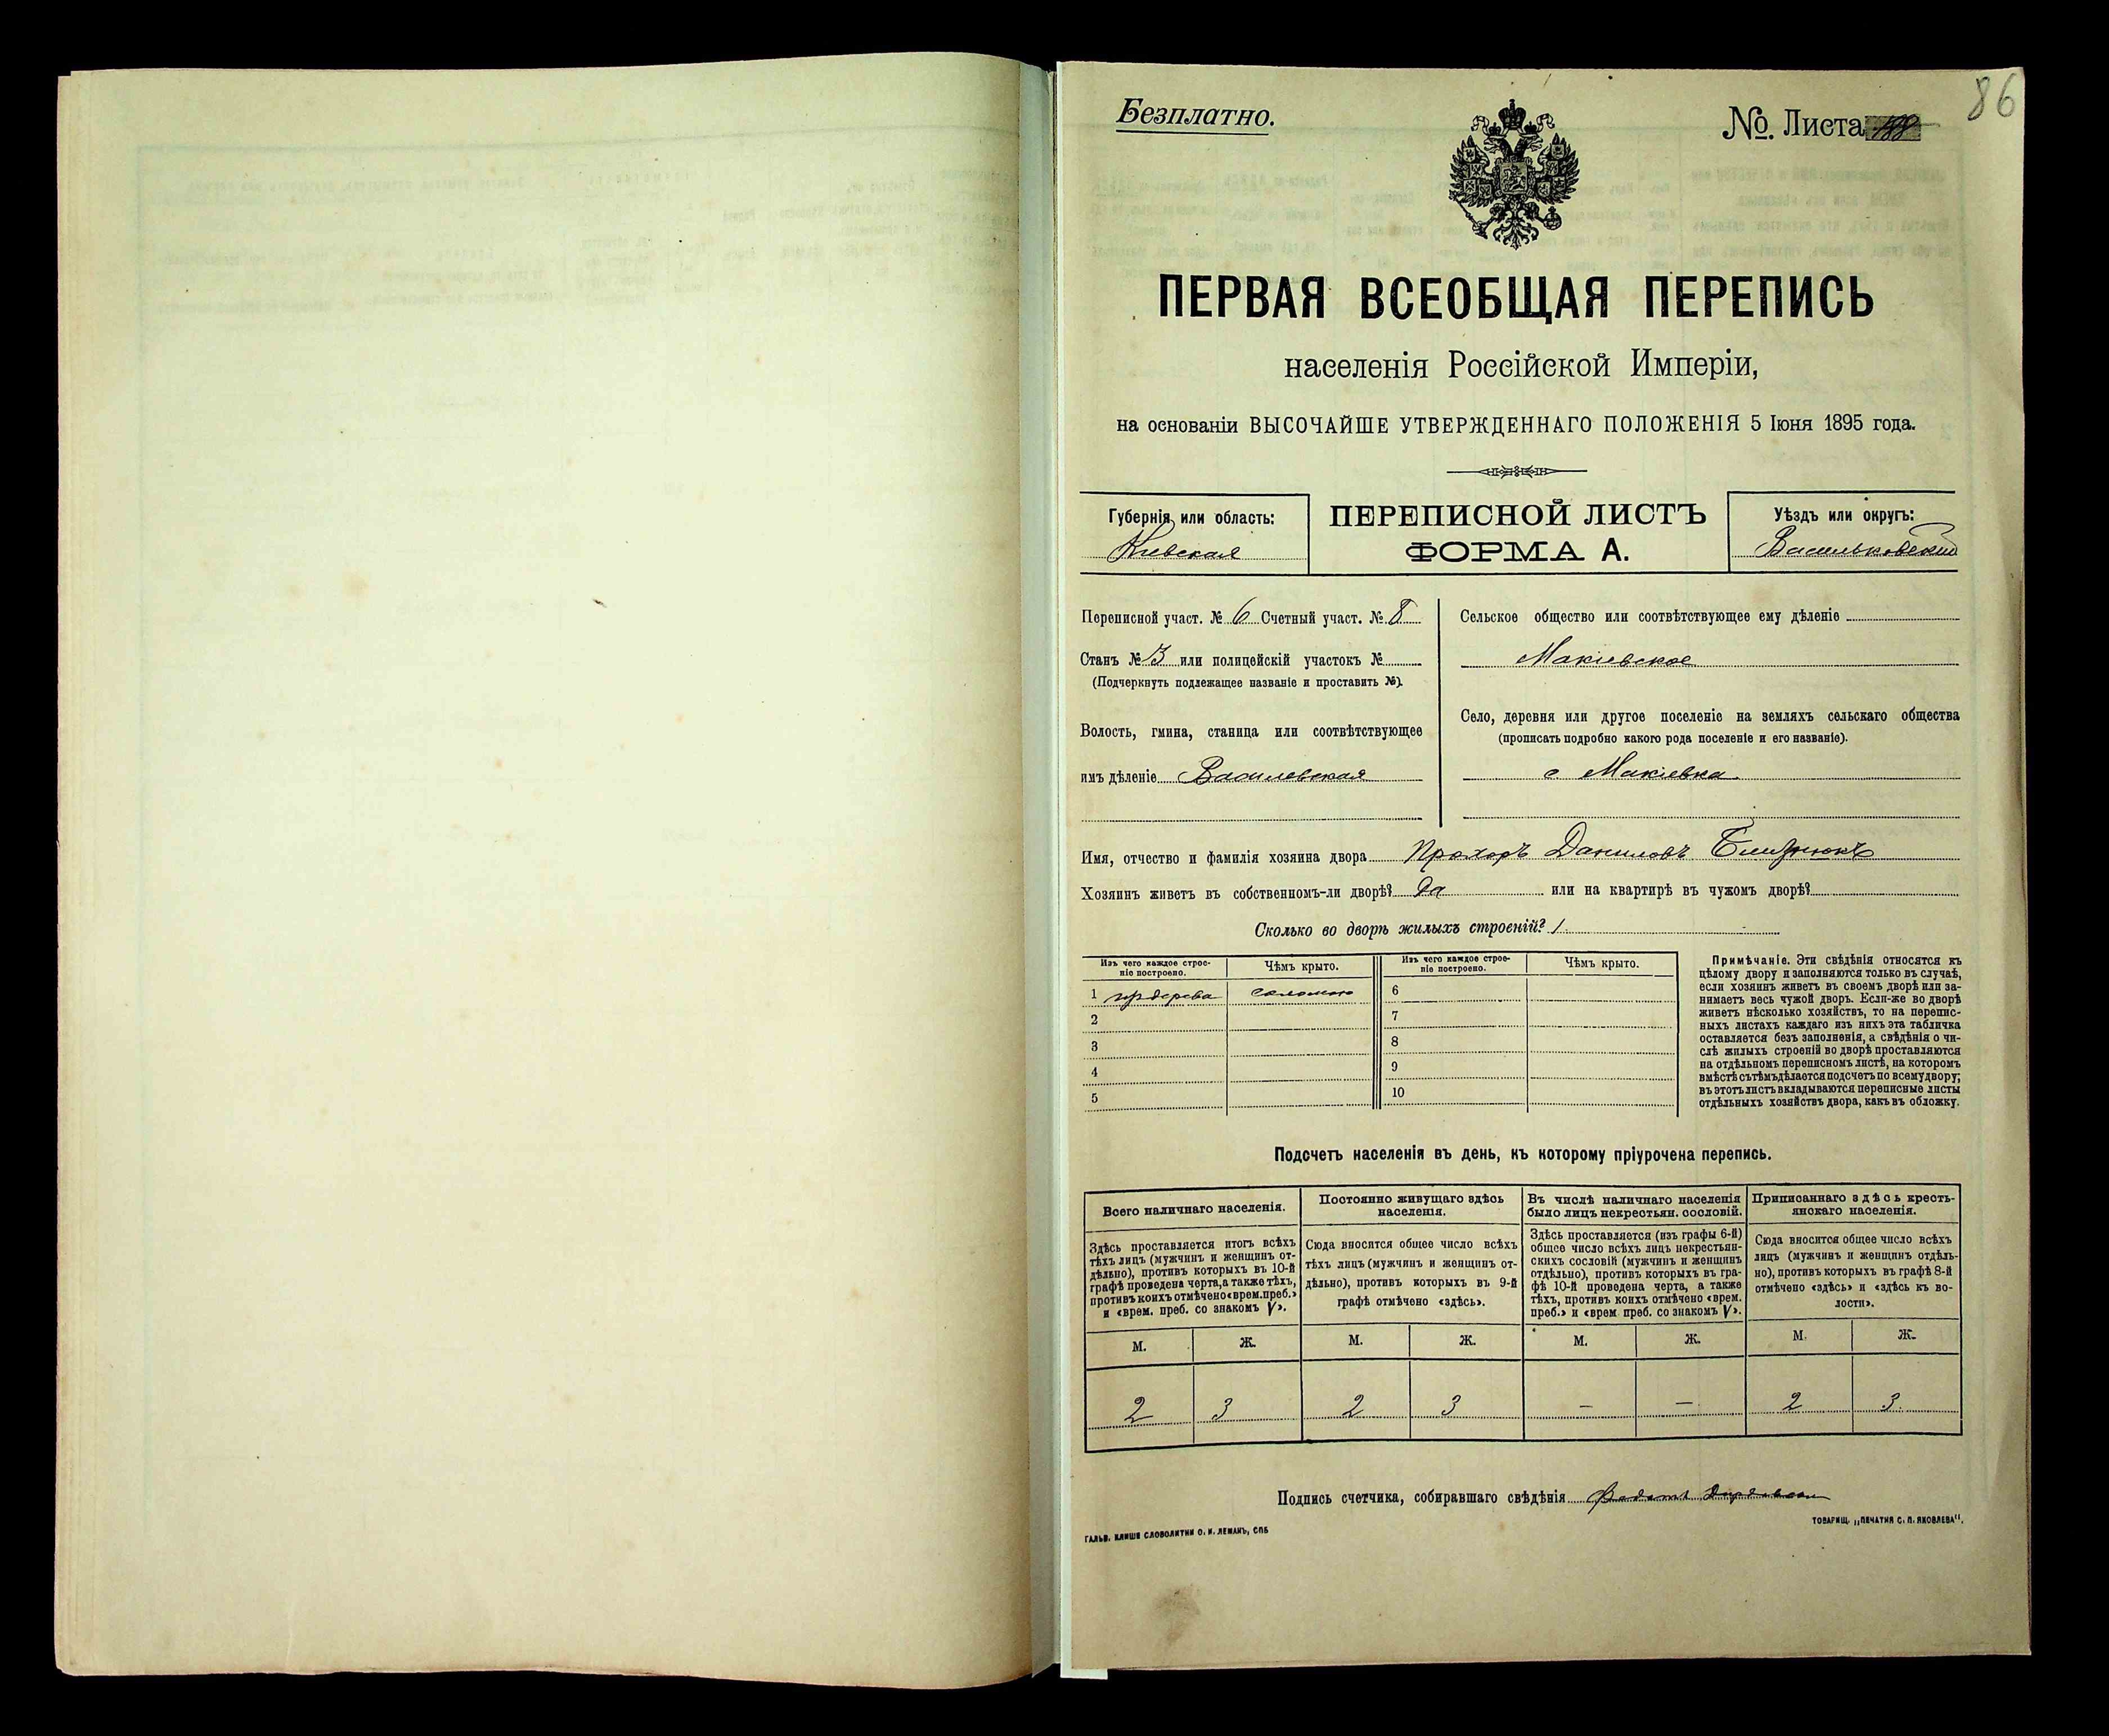 86
Безплатно.
№. Листа
ПЕРВАЯ ВСЕОБЩАЯ ПЕРЕПИСЬ
населенія Россійской Имперіи,
на основаніи ВЫСОЧАЙШЕ УТВЕРЖДЕННАГО ПОЛОЖЕНІЯ 5 Іюня 1895 года.
Губернія или область:
Кіевская
ПЕРЕПИСНОЙ ЛИСТЪ
ФОРМА А.
Уѣздъ или округъ:
Васильковскій
Переписной участ. № 6 Счетный участ. № 8
Станъ № 3 или полицейскій участокъ №
(Подчеркнуть подлежащее названіе и проставить №).
Волость, гмина, станица или соотвѣтствующее
имъ дѣленіе Василевская
Сельское общество или соотвѣтствующее ему дѣленіе
Макіевское
Село, деревня или другое поселеніе на земляхъ сельскаго общества
(прописать подробно какого рода поселеніе и его названіе).
с. Макіевка
Имя, отчество и фамилія хозяина двора Прохоръ Даниловъ
Хозяинъ живетъ въ собственномъ-ли дворѣ? Да или на квартирѣ въ чужомъ дворѣ?
Сколько во дворѣ жилыхъ строеній? 1
Изъ чего каждое строе-
ніе построено.
Чѣмъ крыто.
Изъ чего каждое строе-
ніе построено.
Чѣмъ крыто.
1 изъ дерева соломою 6
2 7
3 8
4 9
5 10
Примѣчаніе. Эти свѣдѣнія относятся къ
цѣлому двору и заполняются только въ случаѣ,
если хозяинъ живетъ въ своемъ дворѣ или за-
нимаетъ весь чужой дворъ. Если-же во дворѣ
живетъ нѣсколько хозяйствъ, то на перепис-
ныхъ листахъ каждаго изъ нихъ эта табличка
оставляется безъ заполненія, а свѣдѣнія о чи-
слѣ жилыхъ строеній во дворѣ проставляются
на отдѣльномъ переписномъ листѣ, на которомъ
вмѣстѣ съ тѣмъ дѣлается подсчетъ по всему двору;
въ этотъ листъ вкладываются переписные листы
отдѣльныхъ хозяйствъ двора, какъ въ обложку.
Подсчетъ населенія въ день, къ которому пріурочена перепись.
Всего наличнаго населенія.
Здѣсь проставляется итогъ всѣхъ
тѣхъ лицъ (мужчинъ и женщинъ от-
дѣльно), противъ которыхъ въ 10-й
графѣ проведена черта, а также тѣхъ,
противъ коихъ отмѣчено «врем. преб.»
и «врем. преб. со знакомъ V».
Постоянно живущаго здѣсь
населенія.
Сюда вносится общее число всѣхъ
тѣхъ лицъ (мужчинъ и женщинъ от-
дѣльно), противъ которыхъ въ 9-й
графѣ отмѣчено «здѣсь».
Въ числѣ наличнаго населенія
было лицъ некрестьян. сословій.
Здѣсь проставляется (изъ графы 6-й)
общее число всѣхъ лицъ некрестьян-
скихъ сословій (мужчинъ и женщинъ
отдѣльно), противъ которыхъ въ гра-
фѣ 10-й проведена черта, а также
тѣхъ, противъ коихъ отмѣчено «врем.
преб.» и «врем. преб. со знакомъ V».
Приписаннаго здѣсь кресть-
янскаго населенія.
Сюда вносится общее число всѣхъ
лицъ (мужчинъ и женщинъ отдѣль-
но), противъ которыхъ въ графѣ 8-й
отмѣчено «здѣсь» и «здѣсь къ во-
лости».
М. Ж. М. Ж. М. Ж. М. Ж.
2 3 2 3 — — 2 3
Подпись счетчика, собиравшаго свѣдѣнія
ГАЛЬВ. КЛИШЕ СЛОВОЛИТНИ О. И. ЛЕМАНЪ, СПБ
ТОВАРИЩ. „ПЕЧАТНЯ С. П. ЯКОВЛЕВА".